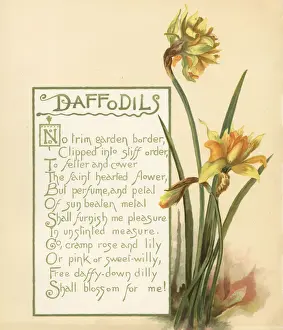 DAFFODILS
No trim garden border,
Clipped into stiff order,
To fetter and cover
The faint hearted flower,
But perfume, and petal
Of sun beaten metal
Shall furnish me pleasure
In unstinted measure.
Go, cramp rose and lily
Or pink or sweet-willy,
Free daffy-down dilly
Shall blossom for me!